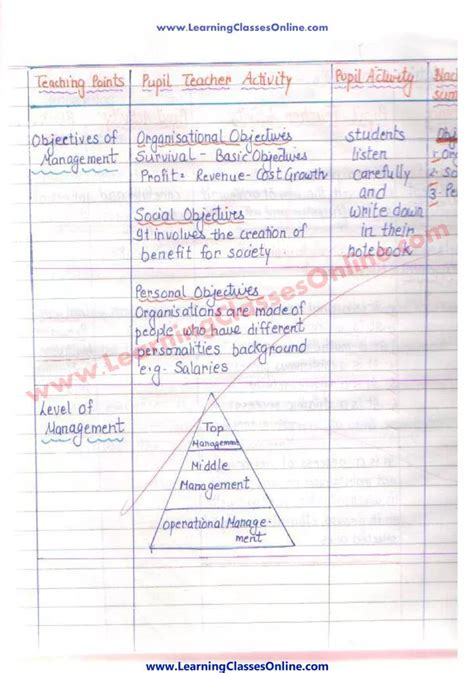 www.LearningClassesOnline.com
Teaching Points
Pupil Teacher Activity
Pupil Activity
Objectives of
Management
Organisational Objectives
Survival - Basic Objectives
Profit = Revenue - Cost Growth
Social Objectives
It involves the creation of
benefit for society.
Personal Objectives
Organisations are made of
people who have different
personalities background
e.g. Salaries
students
listen
carefully
and
write down
in their
notebook
1.
2.
3.
Level of
Management
Top
Management
Middle
Management
Operational Manage-
ment
www.LearningClassesOnline.com
www.LearningClassesOnline.com